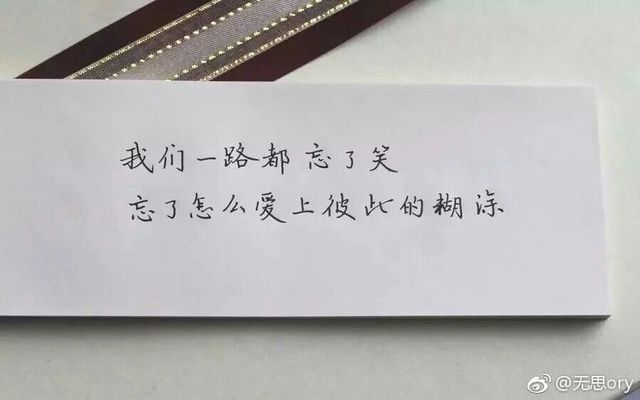 我们一路都忘了笑
忘了怎么爱上彼此的糊涂
@无思ory